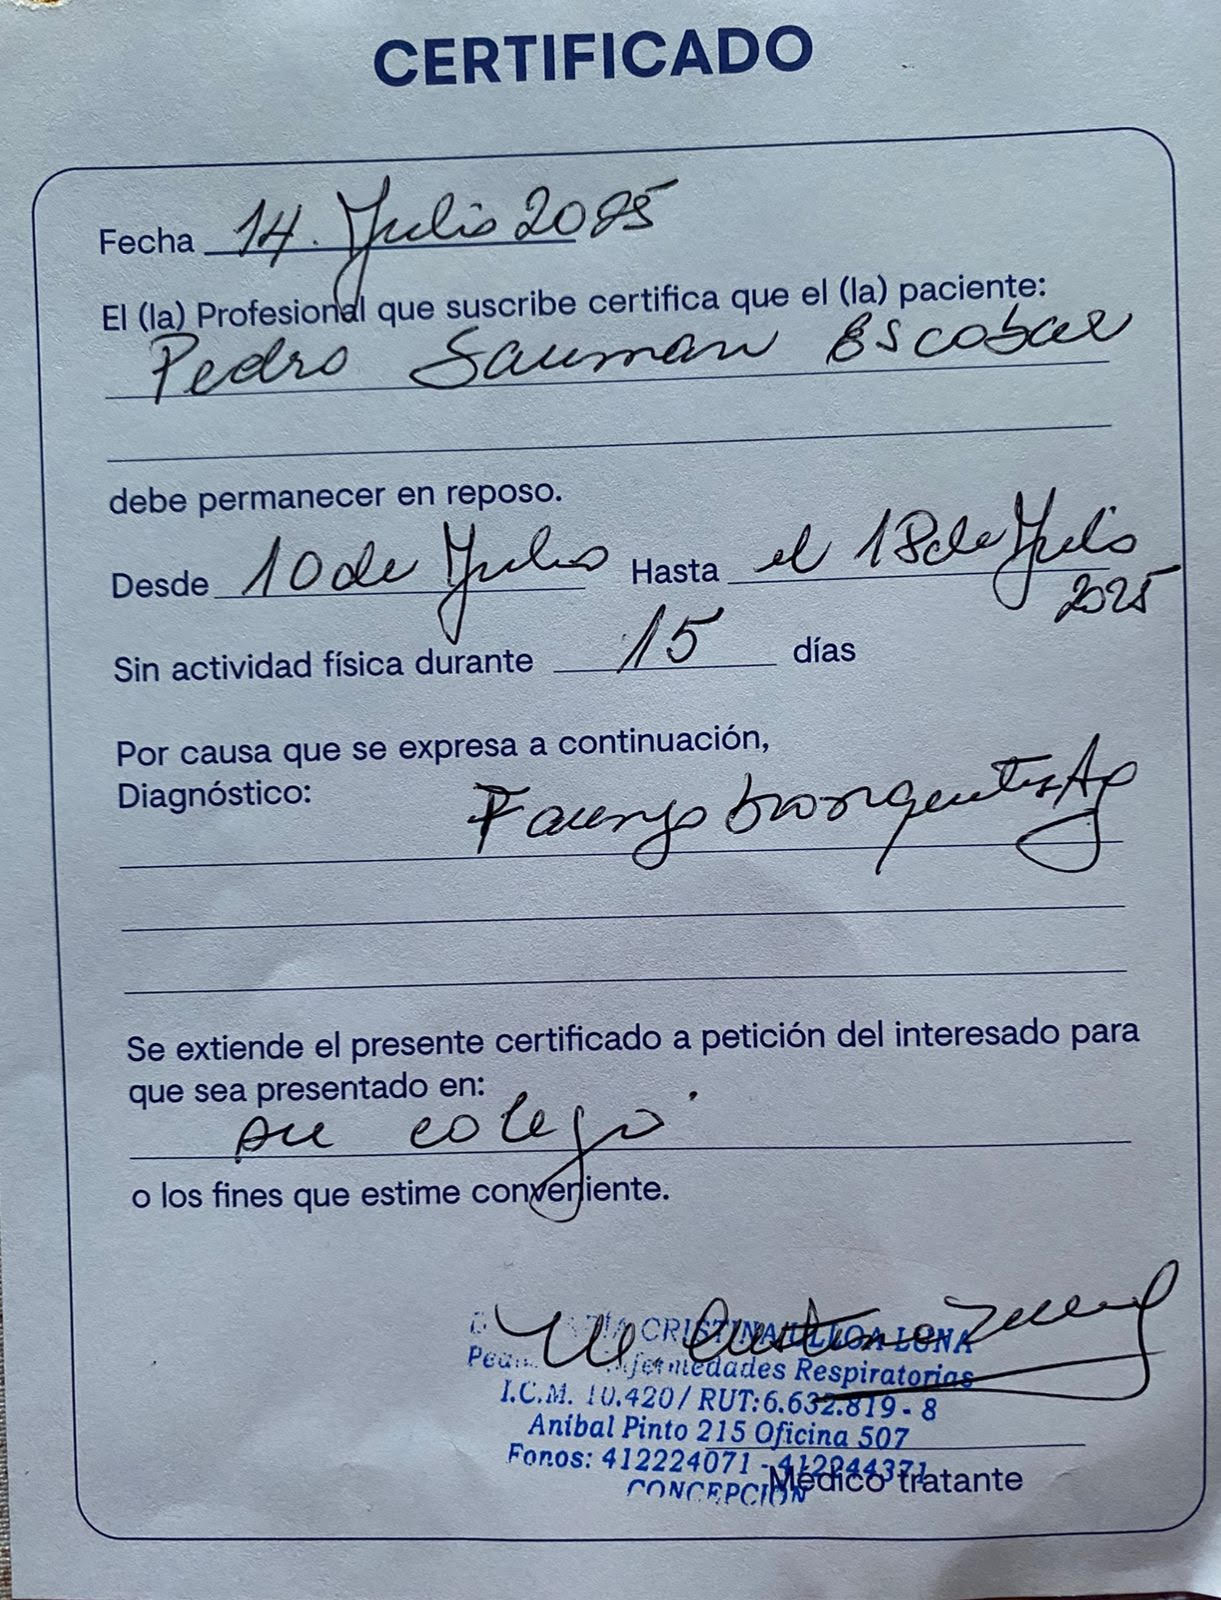 CERTIFICADO
Fecha 14. Julio 2025
El (la) Profesional que suscribe certifica que el (la) paciente:
Pedro Sauman Escobar
debe permanecer en reposo.
Desde 10 de Julio Hasta el 18 de Julio
2025
Sin actividad física durante 15 días
Por causa que se expresa a continuación,
Diagnóstico:
Se extiende el presente certificado a petición del interesado para
que sea presentado en:
su colegio
o los fines que estime conveniente.
CRISTINA ULLOA LUNA
Enfermedades Respiratorias
I.C.M. 10.420 / RUT: 6.632.819 - 8
Aníbal Pinto 215 Oficina 507
Fonos: 412224071 - 412244371
CONCEPCIÓN
Médico tratante